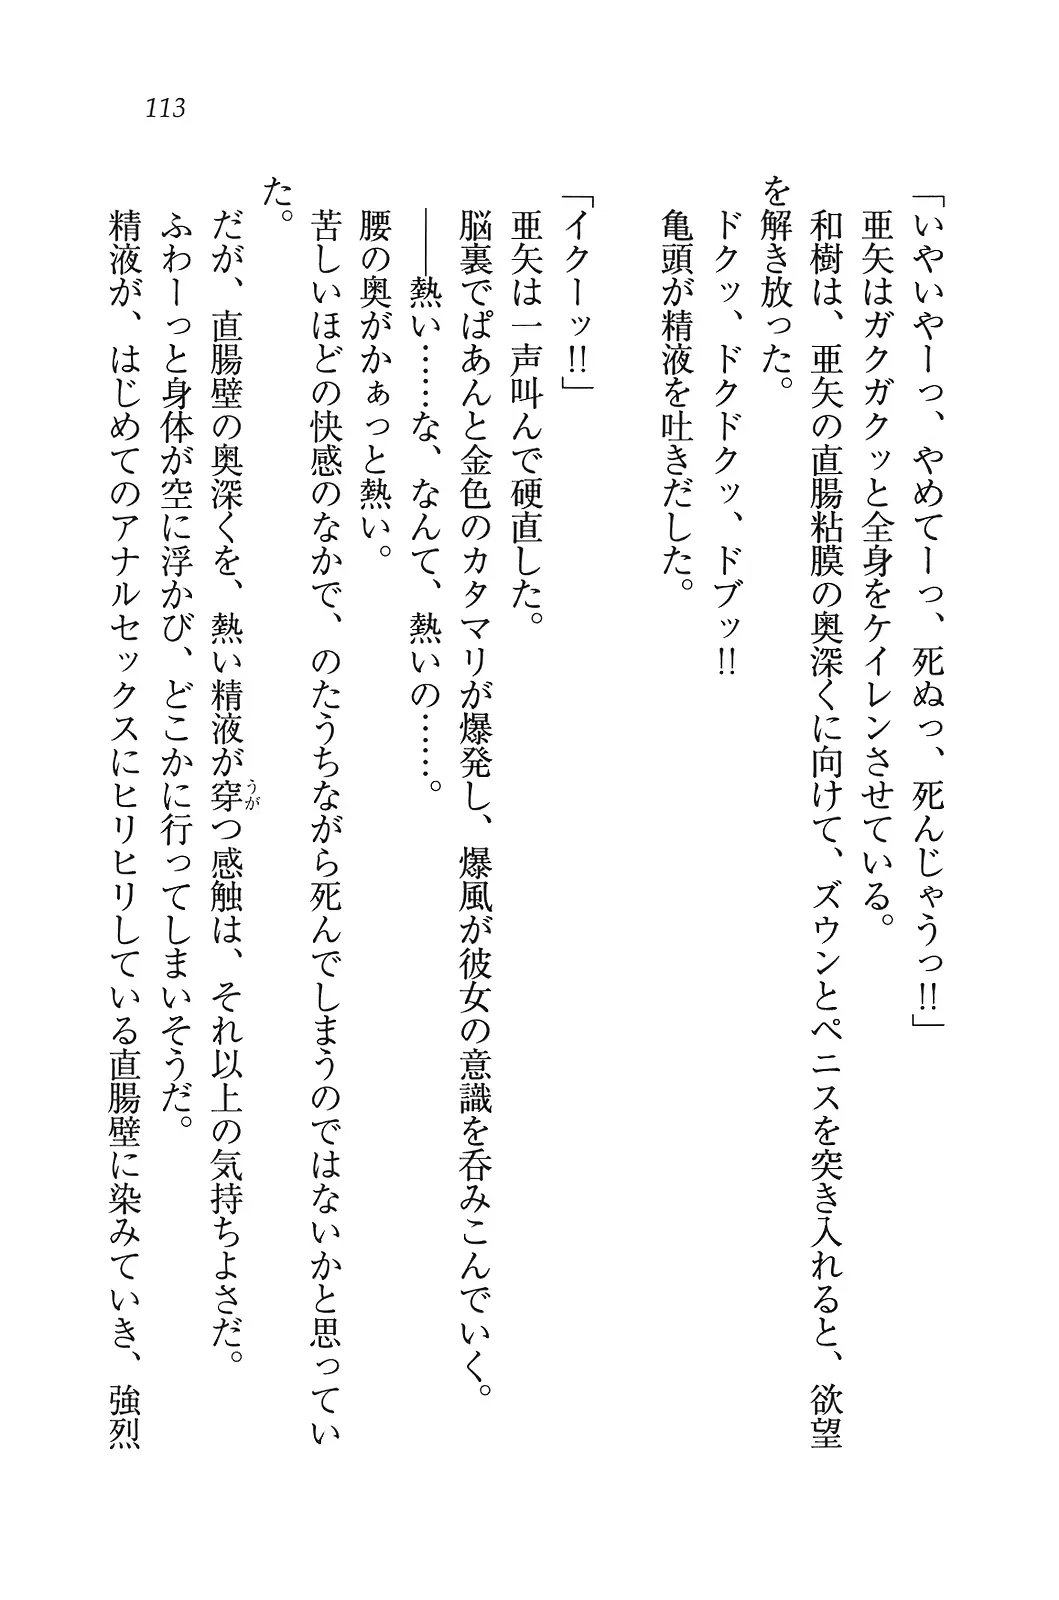 113
「いやいやーっ、やめてーっ、死ぬっ、死んじゃうっ!!」
亜矢はガクガクッと全身をケイレンさせている。
和樹は、亜矢の直腸粘膜の奥深くに向けて、ズウンとペニスを突き入れると、欲望
を解き放った。
ドクッ、ドクドクッ、ドブッ!!
亀頭が精液を吐きだした。
「イクーッ!!」
亜矢は一声叫んで硬直した。
脳裏でぱあんと金色のカタマリが爆発し、爆風が彼女の意識を呑みこんでいく。
――熱い……な、なんて、熱いの……。
腰の奥がかぁっと熱い。
苦しいほどの快感のなかで、のたうちながら死んでしまうのではないかと思ってい
た。
だが、直腸壁の奥深くを、熱い精液が穿うがつ感触は、それ以上の気持ちよさだ。
ふわーっと身体が空に浮かび、どこかに行ってしまいそうだ。
精液が、はじめてのアナルセックスにヒリヒリしている直腸壁に染みていき、強烈